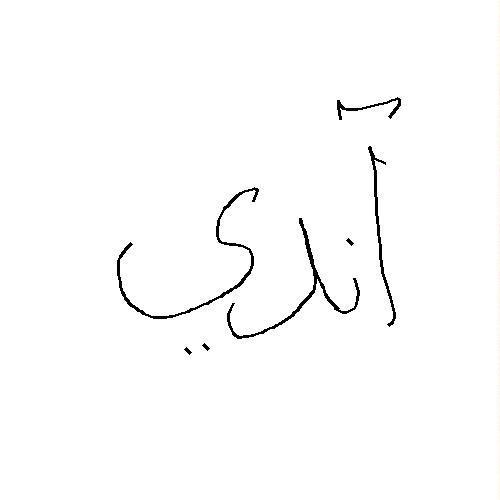 آندي